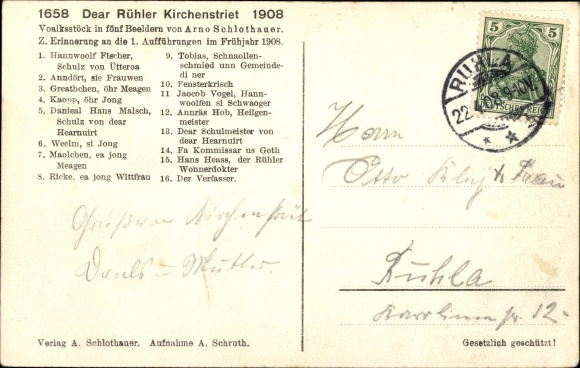 1658 Dear Rühler Kirchenstriet 1908
Voalksstöck in fönf Beeldern von Arno Schlothauer.
Z. Erinnerung an die 1. Aufführungen im Frühjahr 1908.
1. Hannwoolf Fischer,
Schulz von Ütteroa
2. Anndört, sie Frauwen
3. Greathchen, öhr Meagen
4. Kaopp, öhr Jong
5. Danieal Hans Malsch,
Schulz von dear
Hearnuirt
6. Weelm, si Jong
7. Maolchen, ea jong
Meagen
8. Ricke, ea jong Wittfrau
9. Tobias, Schnaollen-
schmied unn Gemeinde-
di ner
10. Fensterkrisch
11. Jaocob Vogel, Hann-
woolfen si Schwaoger
12. Annräs Hob, Heilgen-
meister
13. Dear Schulmeister von
dear Hearnuirt
14. Fa Kommissar us Goth
15. Hans Heass, der Rühler
Wonnerdokter
16. Der Verfasser.
5 5
RUHLA
22
Herrn
Otto Frau
Ruhla
Karolinenstr. 12
Mutter.
Verlag A. Schlothauer. Aufnahme A. Schruth.
Gesetzlich geschützt!